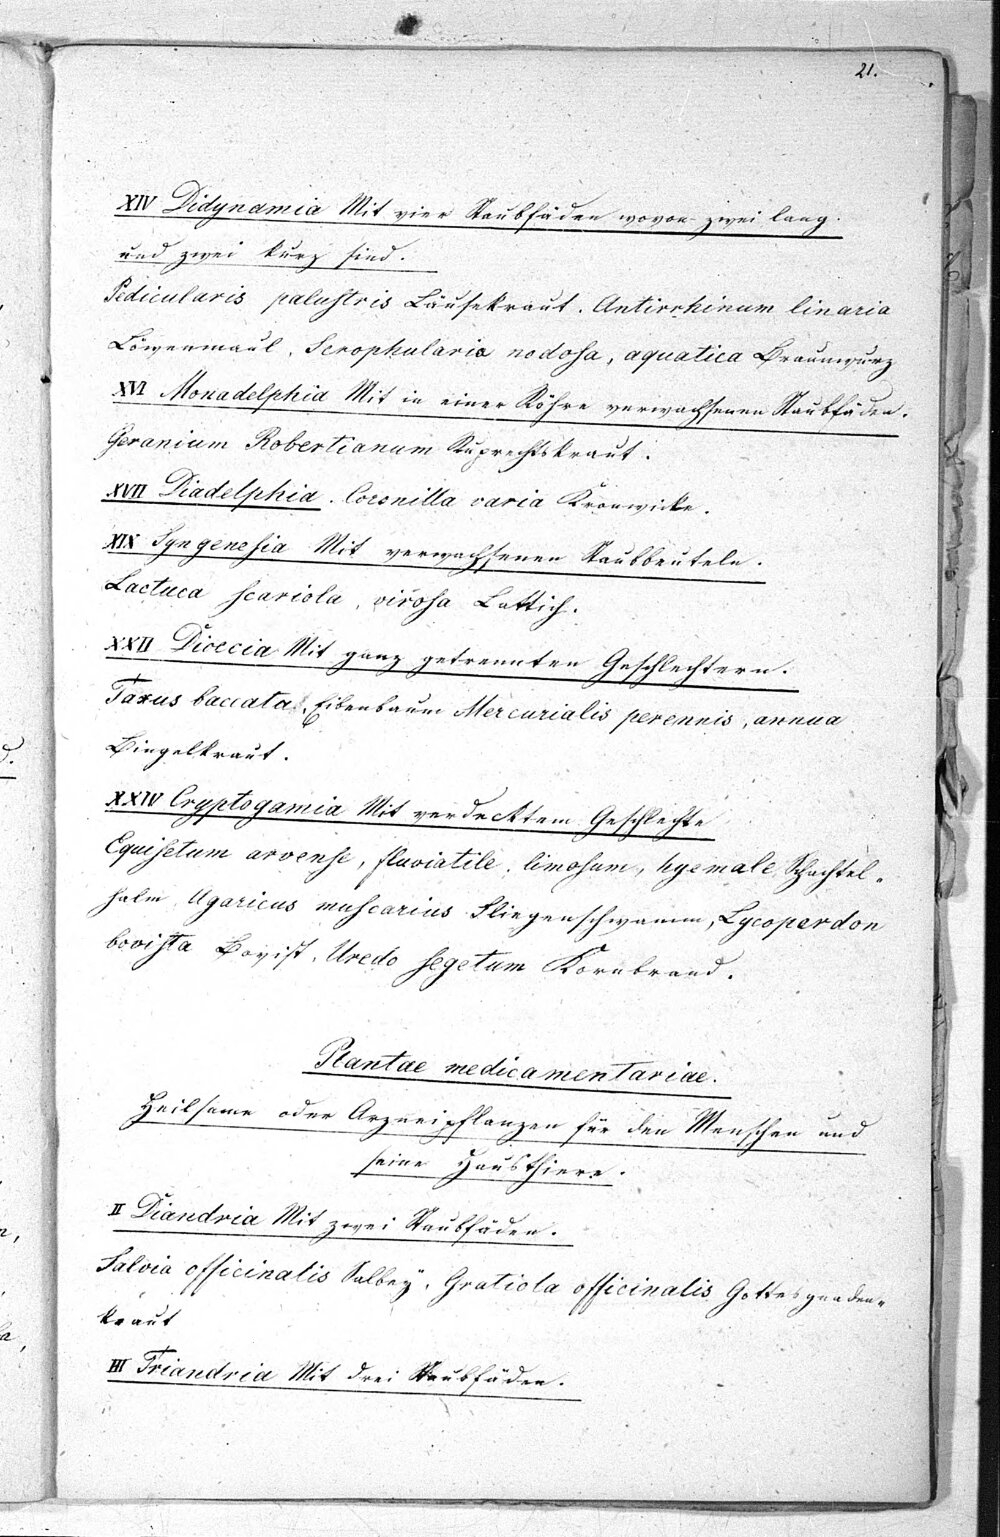 21.
XIV Didynamia Mit vier Staubfäden wovon zwei lang
und zwei kurz sind.
Pedicularis palustris Läusekraut. Antirrhinum linaria
Löwenmaul, Scrophularia nodosa, aquatica Braunwurz
XVI Monadelphia Mit in einer Röhre verwachsenen Staubfäden.
Geranium Robertianum Ruprechtskraut.
XVII Diadelphia. Coronilla varia Kronwicke.
XIX Syngenesia Mit verwachsenen Staubbeuteln.
Lactuca scariola, virosa Lattich.
XXII Dioecia Mit ganz getrennten Geschlechtern.
Taxus baccata, Eibenbaum Mercurialis perennis, annua
Bingelkraut.
XXIV Cryptogamia Mit verdecktem Geschlechte
Equisetum arvense, fluviatile, limosum, hyemale Schachtel-
halm Agaricus muscarius Fliegenschwamm, Lycoperdon
bovista Bovist, Uredo segetum Kornbrand.
Plantae medicamentariae.
Heilsame oder Arzneipflanzen für den Menschen und
seine Hausthiere.
II Diandria Mit zwei Staubfäden.
Salvia officinalis Salbey, Gratiola officinalis Gottesgnaden-
kraut
III Triandria Mit drei Staubfäden.